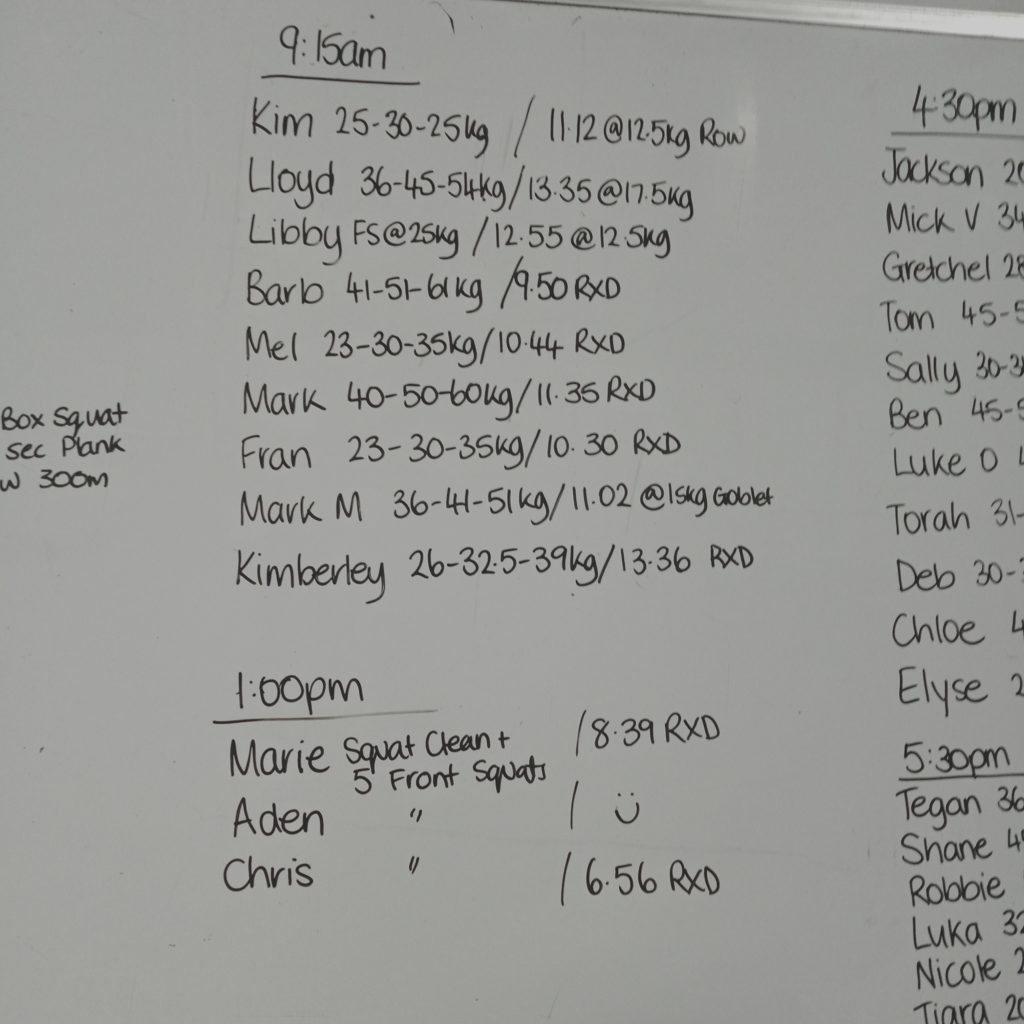 Box Squat
sec Plank
W 300m
9:15am
Kim 25-30-25kg / 11.12 @12.5kg Row
Lloyd 36-45-54kg/13.35 @17.5kg
Libby FS@25kg /12.55 @12.5kg
Barb 41-51-61kg /9.50 RXD
Mel 23-30-35kg/10.44 RXD
Mark 40-50-60kg/11.35 RXD
Fran 23-30-35kg/10.30 RXD
Mark M 36-41-51kg/11.02 @15kg Goblet
Kimberley 26-32.5-39kg/13.36 RXD
1:00pm
Marie Squat Clean + /8.39 RXD
5 Front Squats
Aden " / ü
Chris " /6.56 RXD
4:30pm
Jackson 20
Mick V 34
Gretchel 28
Tom 45-5
Sally 30-3
Ben 45-5
Luke O 4
Torah 31-
Deb 30-3
Chloe 4
Elyse 2
5:30pm
Tegan 36
Shane 45
Robbie
Luka 32
Nicole 2
Tiara 20